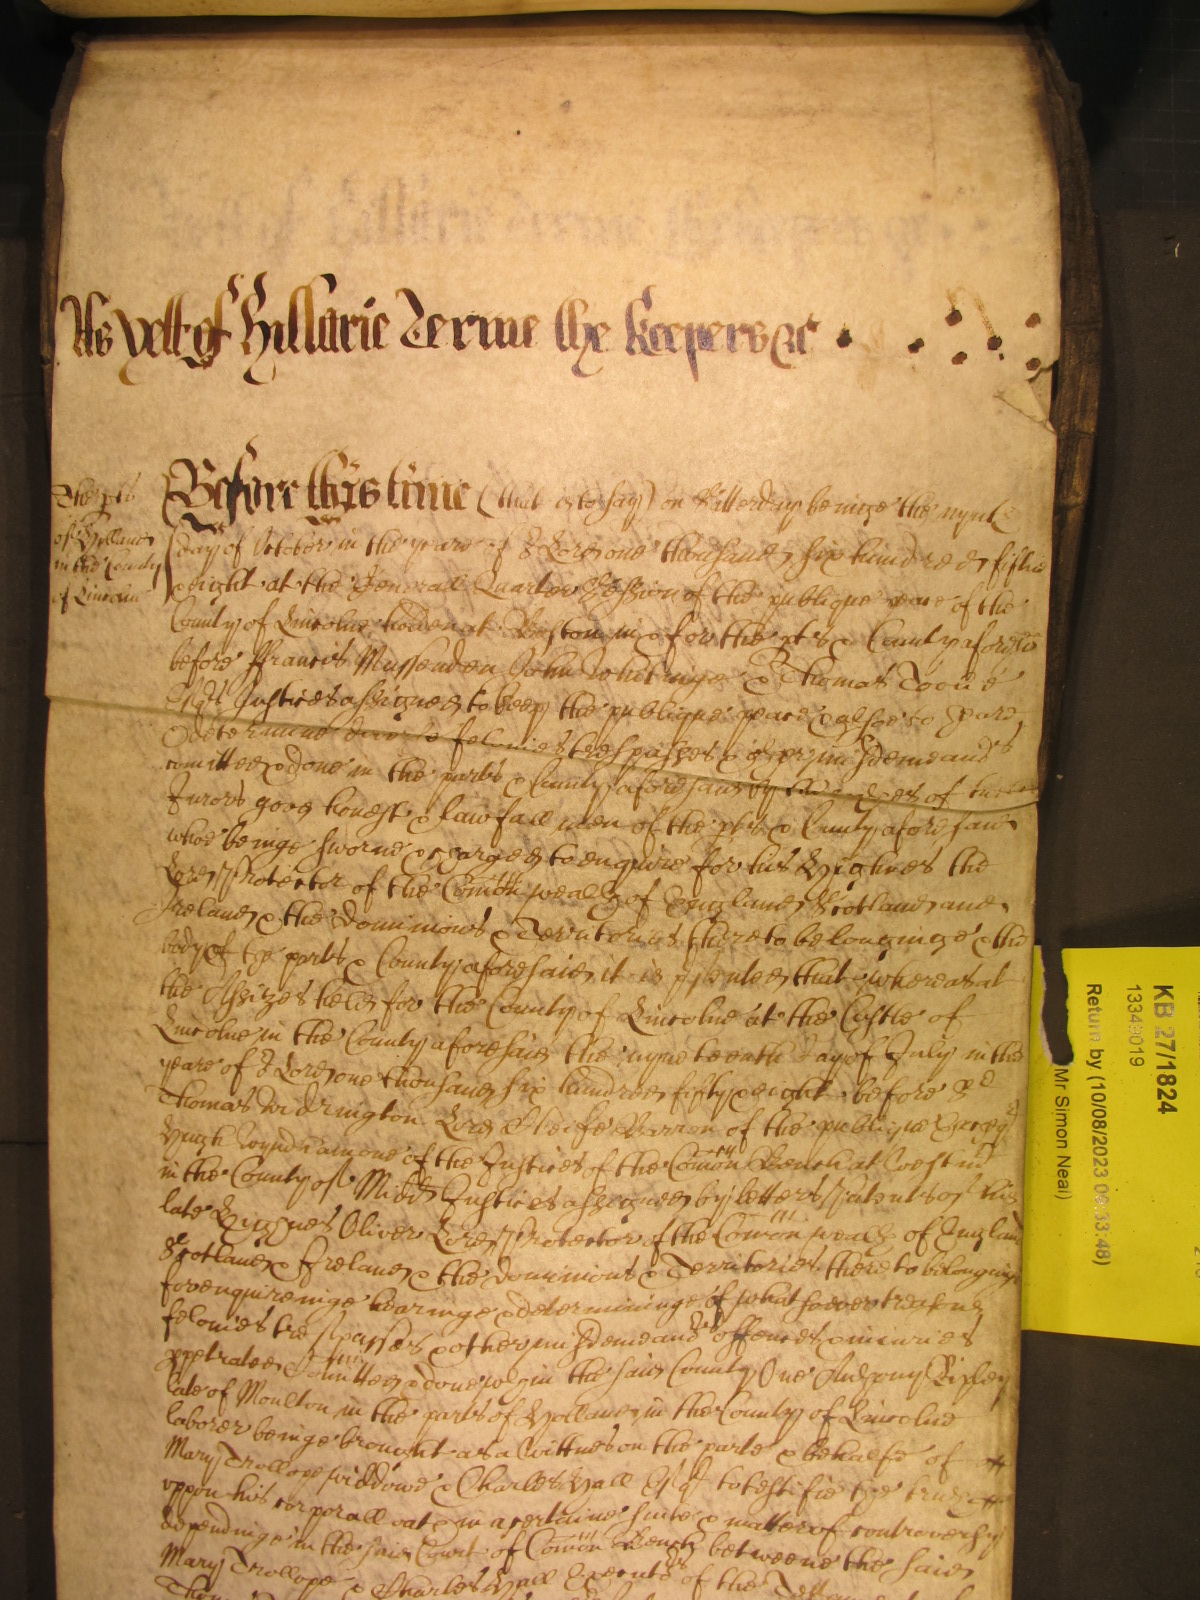 As yett of Hillarie Terme the Keepers &c
The pts
of Holland
in the County
of Lincolne
Before this time (that is to say) on Satterday beinge the nynth
day of October in the yeare of o Lord one thousand six hundred fiftie
eight at the Generall Quarter Session of the publique peace of the
County of Lincolne holden at Boston in & for the pts & County aforesaid
before Francis Mussenden John Whitinge & Thomas Toorie
Esqrs Justices assigned to keepe the publique peace & alsoe to heare
& determine diverse felonies trespasses & other misdemeanors
comitted & done in the parts & County aforesaid by the oathes of twelve
Jurors good honest & lawfull men of the pts & County aforesaid
whoe beinge sworne & charged to enquire for his Highnes the
Lord Protector of the Comonwealth of England Scotland and
Ireland & the Dominions & Territories thereto belonginge & the
body of the parts & County aforesaid it is psented that whereas at
the Assizes held for the County of Lincolne at the Castle of
Lincolne in the County aforesaid the nyneteenth day of July in the
yeare of o Lord one thousand six hundred fifty & eight before Sr
Thomas Widrington Lord Cheife Barron of the publique Exchequer
Hugh Wyndham one of the Justices of the Comon Bench at Westmr
in the County of Midd Justices assigned by letters Patents of his
late Highnes Oliver Lord Protector of the Comonwealth of England
Scotland & Ireland & the Dominions & Territories thereto belonginge
for enquireinge hearinge & determininge of whatsoever treasons
felonies trespasses & other misdemeanors offences & iniuries
ppetrated Comitted & done wthin the said County One Anthony Ripley
late of Moulton in the parts of Holland in the County of Lincolne
laborer beinge brought as a Wittnes on the parte & behalfe of
Mary Trollope widdowe & Charles Hall Esqr to testifie the truth
uppon his corporall oath in a certaine suite & matter of controversy
dependinge in the said Court of Comon Bench betweene the said
Mary Trollope & Charles Hall Executrs of the Testament
KB 27/1824
13349019
Return by (10/08/2023 06:33:48)
Mr Simon Neal